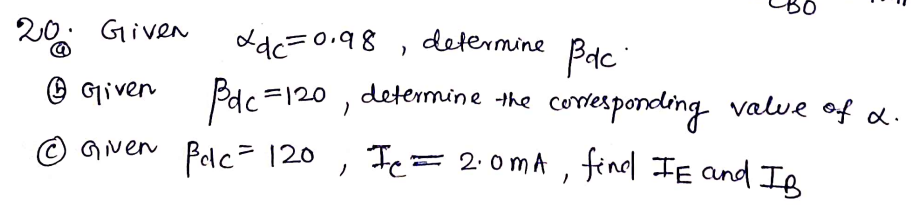 CBO
20. Given αdc=0.98, determine βdc.
ⓐ
ⓑ Given βdc=120, determine the corresponding value of α.
ⓒ Given βdc= 120, Ic= 2.0mA, find IE and IB